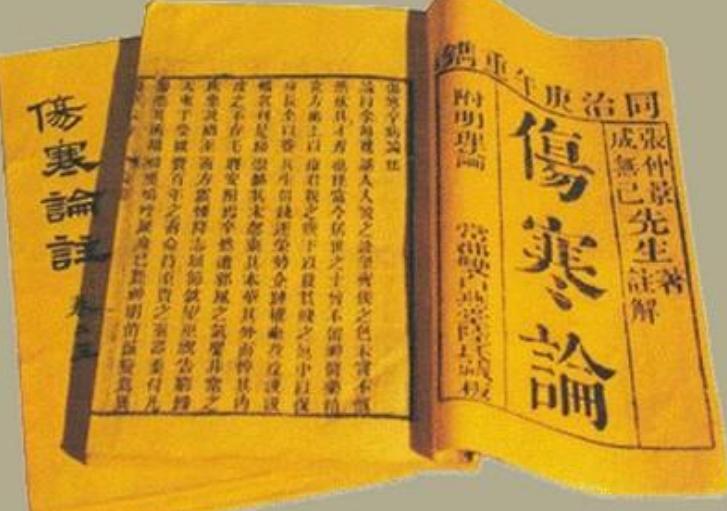 同治庚午重鐫
張仲景先生著
成無己先生註解
傷寒論
附明理論
傷寒卒病論集
論曰余每覽越人入虢之診望齊侯之色未嘗不慨
然歎其才秀也怪當今居世之士曾不留神醫藥精
究方術上以療君親之疾下以救貧賤之厄中以保
身長全以養其生但競逐榮勢企踵權豪孜孜汲汲
惟名利是務崇飾其末忽棄其本華其外而悴其內
皮之不存毛將安附焉卒然遭邪風之氣嬰非常之
疾患及禍至而方震慄降志屈節欽望巫祝告窮歸
天束手受敗賚百年之壽命持至貴之重器委付凡
傷寒論註